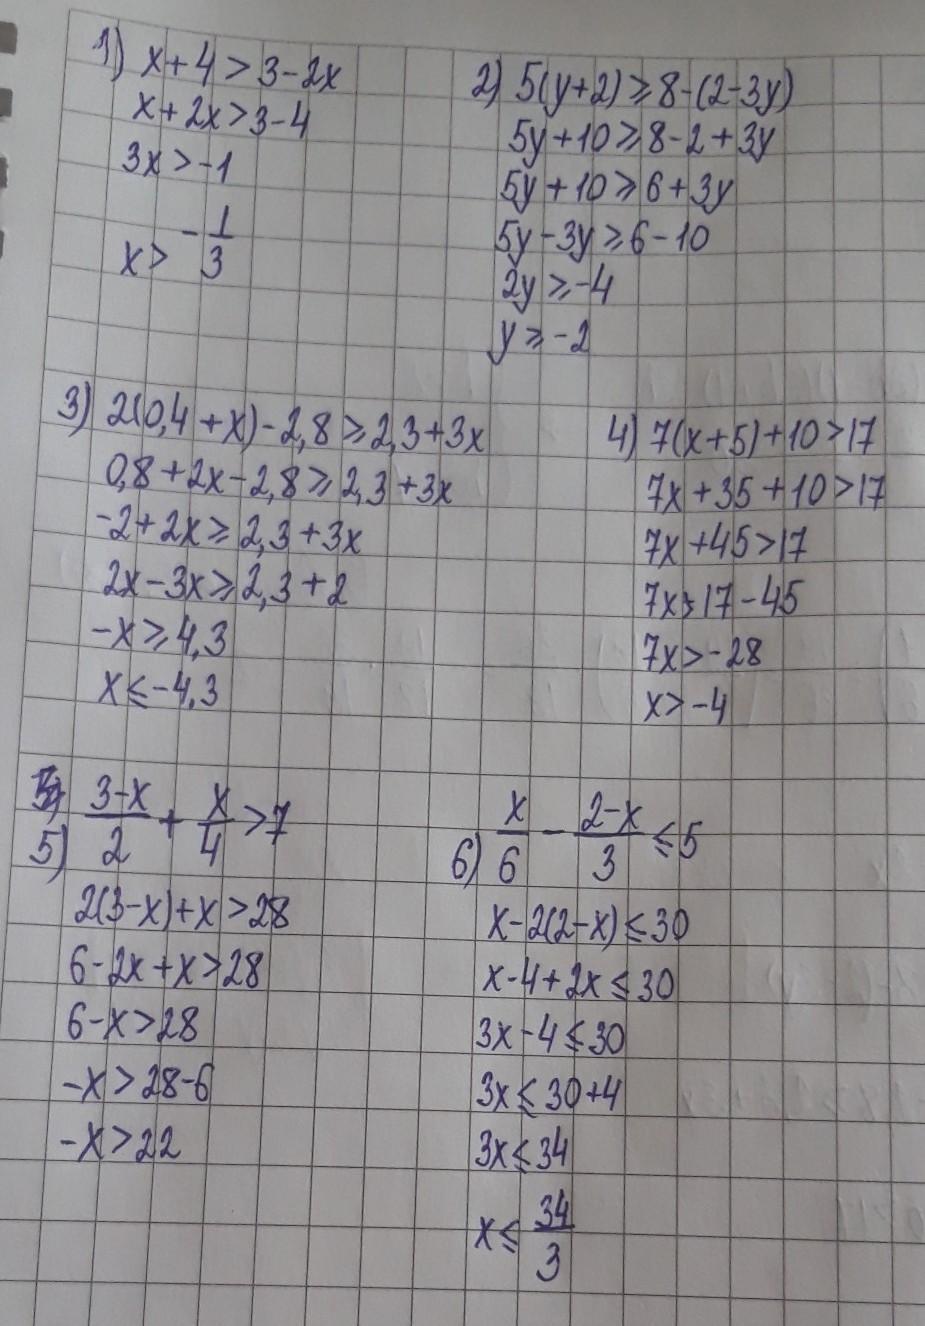 1) x+4>3-2x
x+2x>3-4
3x>-1
x> -1/3
2) 5(y+2)≥8-(2-3y)
5y+10≥8-2+3y
5y+10≥6+3y
5y-3y≥6-10
2y≥-4
y≥-2
3) 2(0,4+x)-2,8≥2,3+3x
0,8+2x-2,8≥2,3+3x
-2+2x≥2,3+3x
2x-3x≥2,3+2
-x≥4,3
x≤-4,3
4) 7(x+5)+10>17
7x+35+10>17
7x+45>17
7x>17-45
7x>-28
x>-4
5) (3-x)/2 + x/4 >7
2(3-x)+x>28
6-2x+x>28
6-x>28
-x>28-6
-x>22
6) x/6 - (2-x)/3 ≤5
x-2(2-x)≤30
x-4+2x≤30
3x-4≤30
3x≤30+4
3x≤34
x≤ 34/3